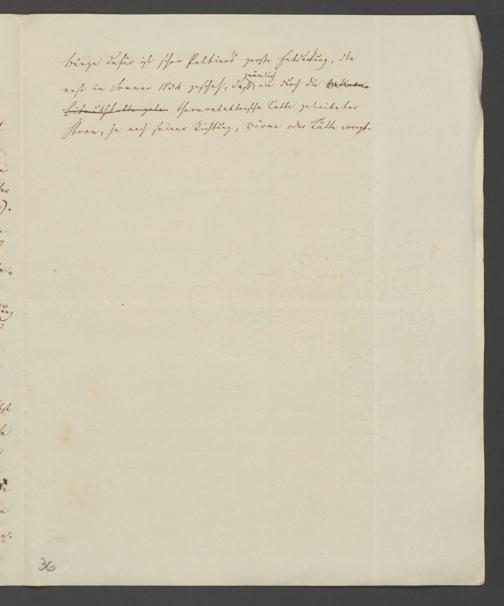 bürge dafür ist schon Peltier's große Entdeckung, die
erst im Sommer 1834 geschah, daß nämlich ein durch die
thermoelektrische Kette geleiteter
Strom, je nach seiner Richtung, Wärme oder Kälte erregt.
36